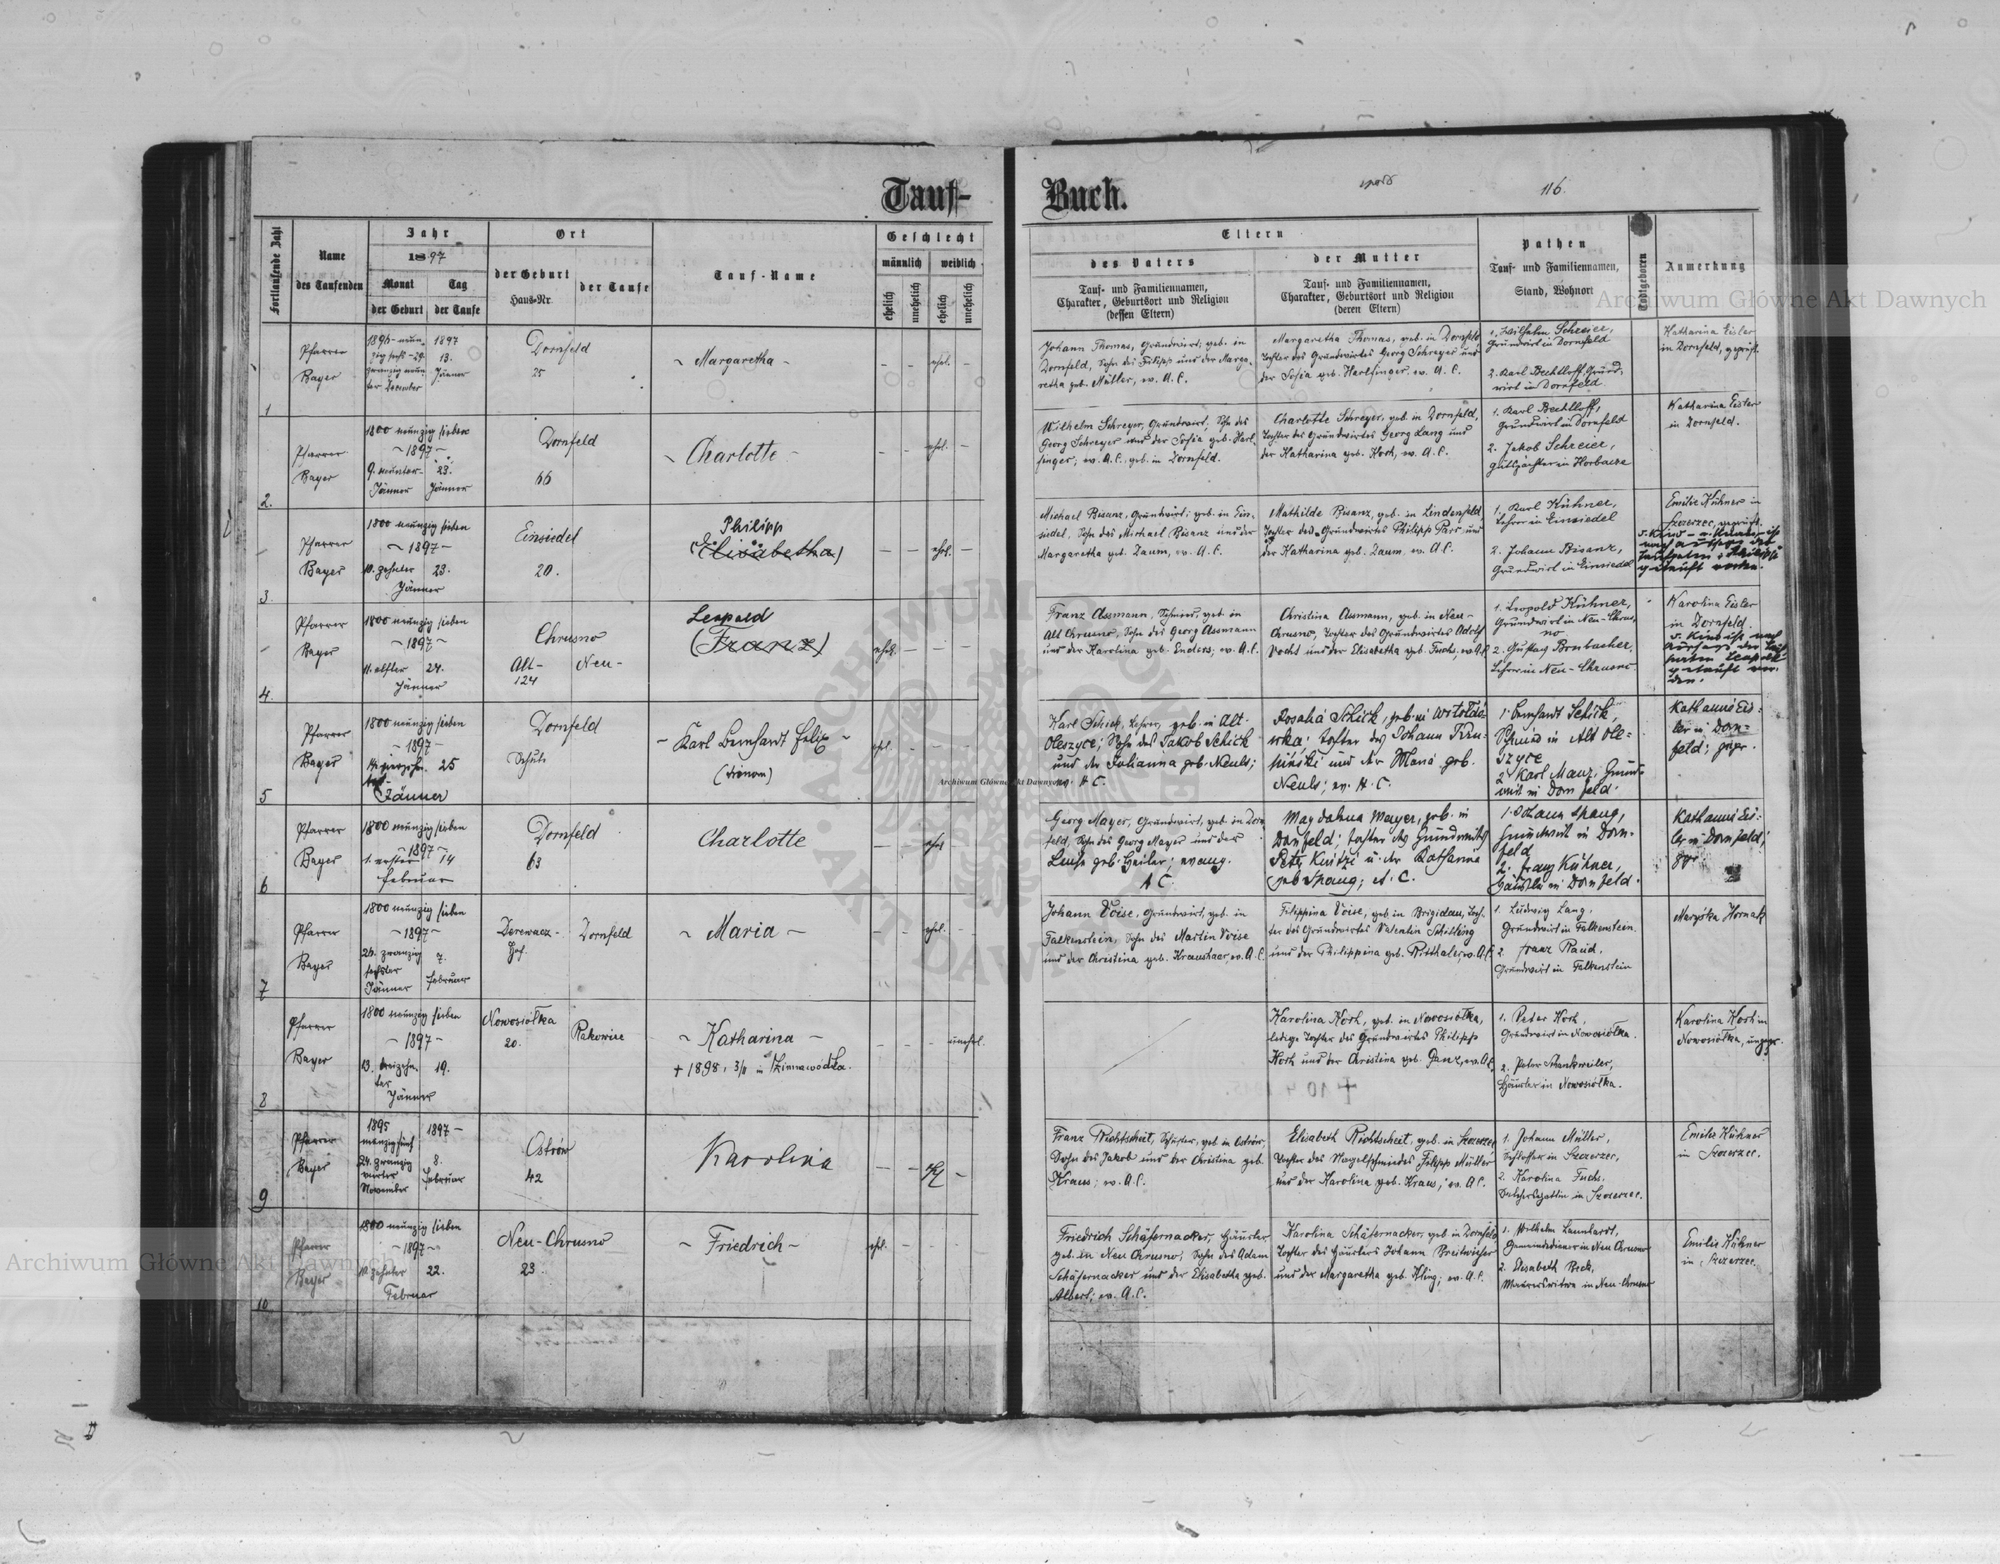 Tauf-
Buch.
116.
Fortlaufende Zahl
Name
des Taufenden
Jahr
1897
Monat
Tag
der Geburt
der Taufe
Ort
der Geburt
Haus-Nr.
der Taufe
Tauf-Name
Geschlecht
männlich
weiblich
ehelich
unehelich
ehelich
unehelich
Eltern
des Vaters
Tauf- und Familiennamen,
Charakter, Geburtsort und Religion
(dessen Eltern)
der Mutter
Tauf- und Familiennamen,
Charakter, Geburtsort und Religion
(deren Eltern)
Pathen
Tauf- und Familiennamen,
Stand, Wohnort
Todtgeboren
Anmerkung
1
Pfarrer
Bayer
1897
13.
Jänner
Dornfeld
25
- Margaretha -
- - ehel. -
Johann Thomas, Grundwirt, geb. in
Dornfeld, Sohn des Filipp und der Marga-
retha geb. Müller, ev. A. C.
Margaretha Thomas, geb. in Dornfeld
Tochter des Grundwirtes Georg Schreyer und
der Sofia geb. Harlfinger, ev. A. C.
1. Wilhelm Schreier,
Grundwirt in Dornfeld
2. Karl Bechtloff, Grund-
wirt in Dornfeld
Katharina Eisler
in Dornfeld, geprüft.
2.
Pfarrer
Bayer
1800 neunzig sieben
- 1897 -
9. neunter- 23.
Jänner Jänner
Dornfeld
66
- Charlotte -
- - ehel. -
Wilhelm Schreyer, Grundwirt, Sohn des
Georg Schreyer und der Sofia geb. Harl-
finger, ev. A. C., geb. in Dornfeld.
Charlotte Schreyer, geb. in Dornfeld,
Tochter des Grundwirtes Georg Lang und
der Katharina geb. Koch, ev. A. C.
1. Karl Bechtloff,
Grundwirt in Dornfeld
2. Jakob Schreier,
Gutspächter in Horbacze
Katharina Eisler
in Dornfeld.
3.
Pfarrer
Bayer
1800 neunzig sieben
- 1897 -
10. zehnter 23.
Jänner
Einsiedel
20.
Philipp
(Elisabetha)
- - ehel. -
Michael Bisanz, Grundwirt, geb. in Ein-
siedel, Sohn des Michael Bisanz und der
Margaretha geb. Daum, ev. A. C.
Mathilde Bisanz, geb. in Lindenfeld
Tochter des Grundwirtes Philipp Parr und
der Katharina geb. Daum, ev. A. C.
1. Karl Kühner,
Lehrer in Einsiedel
2. Johann Bisanz,
Grundwirt in Einsiedel
Emilie Kühner in
Szczerzec, geprüft.
4.
Pfarrer
Bayer
1800 neunzig sieben
- 1897 -
11. elfter 24.
Jänner
Chrusno
Alt- Neu-
124
Leopold
(Franz)
ehel. - - -
Franz Assmann, Schmied, geb. in
Alt Chrusno, Sohn des Georg Assmann
und der Karolina geb. Enders; ev. A. C.
Christina Assmann, geb. in Neu-
Chrusno, Tochter des Grundwirtes Adolf
Pocht und der Elisabetha geb. Fuchs, ev. A. C.
1. Leopold Kühner,
Grundwirt in Neu-Chrus,
no
2. Gustav Brubacher,
Lehrer in Neu-Chrusno
Karolina Eisler
in Dornfeld.
5
Pfarrer
Bayer
1800 neunzig sieben
- 1897 -
25
Jänner
Dornfeld
Schule
- Karl Bernhardt Felix -
ehel. - - -
Karl Schick, Lehrer, geb. in Alt-
Oleszyce; Sohn des Jakob Schick
und der Julianna geb. Neuls;
ev. A. C.
Neuls; ev. A. C.
1. Bernhardt Schick,
Schmied in Alt Ole-
szyce
2. Karl Manz, Grund-
wirt in Dornfeld.
Katharina Eis-
ler in Dorn-
feld; gepr.
6
Pfarrer
Bayer
1800 neunzig sieben
- 1897 -
1. erster 14
Februar
Dornfeld
63
Charlotte
- - ehel. -
Georg Mayer, Grundwirt, geb. in Dorn
feld, Sohn des Georg Mayer und der
Luise geb. Heiler; evang.
A C.
Magdalena Mayer, geb. in
Dornfeld; Tochter des Grundwirtes
geb. Spaug; A. C.
1. Johann Spaug,
Grundwirt in Dorn-
feld
2. Franz Kühner,
Häusler in Dornfeld.
Katharina Eis-
ler in Dornfeld;
7
Pfarrer
Bayer
1800 neunzig sieben
- 1897 -
26. zwanzig 7.
sechster
Jänner Februar
Derewacz- Dornfeld
Hof.
- Maria -
- - ehel. -
Johann Voise, Grundwirt, geb. in
Falkenstein, Sohn des Martin Voise
und der Christina geb. Kraushaar, ev. A. C.
Filippina Voise, geb. in Brigidau, Toch-
ter des Grundwirtes Valentin Schilling
und der Philippina geb. Rotthaler, ev. A. C.
1. Ludwig Lang,
Grundwirt in Falkenstein.
2. Franz Rand,
Grundwirt in Falkenstein
Maryśka Hornak
8
Pfarrer
Bayer
1800 neunzig sieben
- 1897 -
13. dreizehn- 19.
ter
Jänner
Nowosiółka
20.
Rakowiec
- Katharina -
+ 1898, 3/11 in Zimnawódka.
- - - unehel.
Karolina Koch, geb. in Nowosiółka,
ledige Tochter des Grundwirtes Philipp
Koch und der Christina geb. Ganz, ev. A. C.
1. Peter Koch,
Grundwirt in Nowosiółka.
2. Peter Schankweiler,
Häusler in Nowosiółka.
Karolina Koch in
Nowosiółka, ungepr.
9
Pfarrer
Bayer
1895 1897 -
neunzig fünf
24. zwanzig 8.
vierter Februar
November
Ostrów
42
Karolina
- - ehel -
Franz Richtscheit, Schuster, geb. in Ostrów,
Sohn des Jakob und der Christina geb.
Kraus; ev. A. C.
Elisabeth Richtscheit, geb. in Szczerzec
Tochter des Nagelschmiedes Filipp Müller
und der Karolina geb. Kraus; ev. A. C.
1. Johann Müller,
Schlosser in Szczerzec,
2. Karolina Fuchs,
in Szczerzec.
Emilie Kühner
in Szczerzec.
10
Pfarrer
Bayer
1800 neunzig sieben
- 1897 -
10. zehnter 22.
Februar
Neu-Chrusno
23.
- Friedrich -
ehel. - - -
Friedrich Schäfernacker, Häusler
geb. in Neu Chrusno, Sohn des Adam
Schäfernacker und der Elisabetha geb.
Albert; ev. A. C.
Karolina Schäfernacker, geb. in Dornfeld
Tochter des Häuslers Johann Breitwieser
und der Margaretha geb. Kling; ev. A. C.
1. Wilhelm Launhardt,
Gemeindediener in Neu Chrusno
2. Elisabeth Beck,
Maurerswitwe in Neu-Chrusno
Emilie Kühner
in Szczerzec.
Archiwum Główne Akt Dawnych
Archiwum Główne Akt Dawnych
Archiwum Główne Akt Dawnych
ARCHIWUM GŁÓWNE AKT DAWNYCH